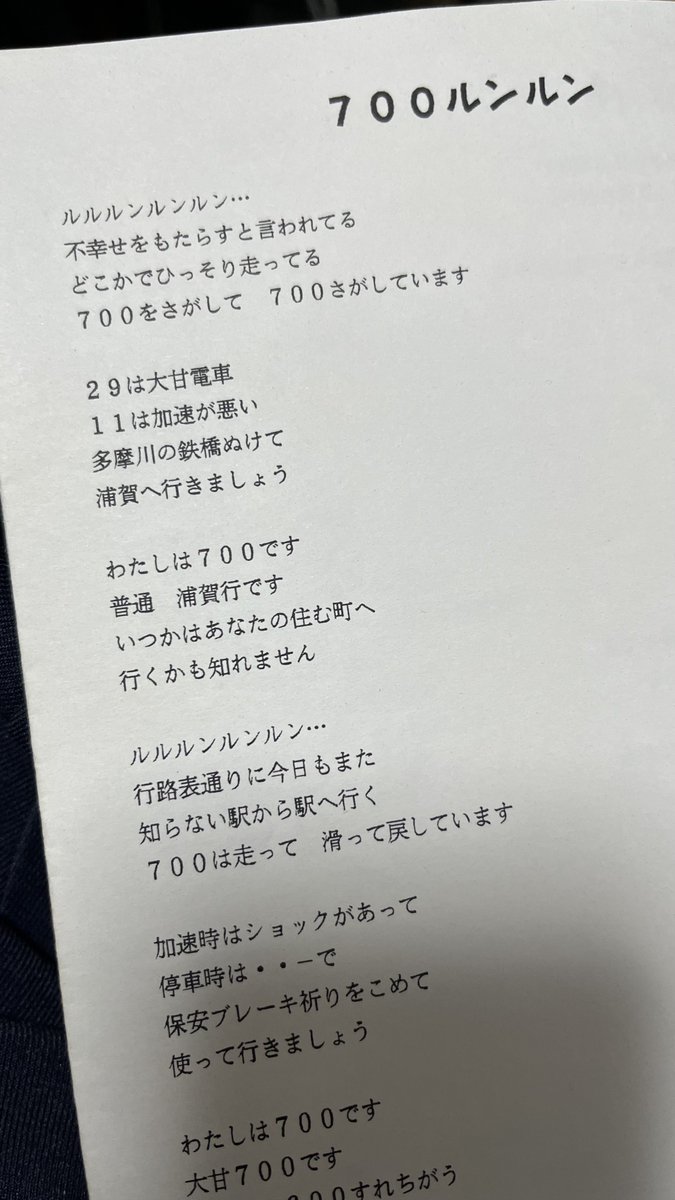 ７００ルンルン
ルルルンルンルン…
不幸せをもたらすと言われてる
どこかでひっそり走ってる
７００をさがして　７００さがしています
２９は大甘電車
１１は加速が悪い
多摩川の鉄橋ぬけて
浦賀へ行きましょう
わたしは７００です
普通　浦賀行です
いつかはあなたの住む町へ
行くかも知れません
ルルルンルンルン…
行路表通りに今日もまた
知らない駅から駅へ行く
７００は走って　滑って戻しています
加速時はショックがあって
停車時は・・－で
保安ブレーキ祈りをこめて
使って行きましょう
わたしは７００です
大甘７００です
００すれちがう